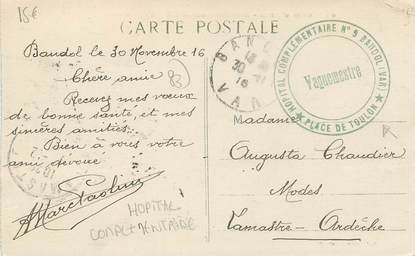 15€
CARTE POSTALE
Bandol le 30 Novembre 16
Chère amie
Recevez mes vœux
de bonne santé, et mes
sincères amitiés.
Bien à vous votre
ami dévoué
HOPITAL
BANDOL
30
16
VAR
HÔPITAL COMPLÉMENTAIRE N° 9 BANDOL (VAR)
Vaguemestre
★ PLACE DE TOULON ★
Madame
Augusta Chaudier
Modes
Lamastre - Ardèche